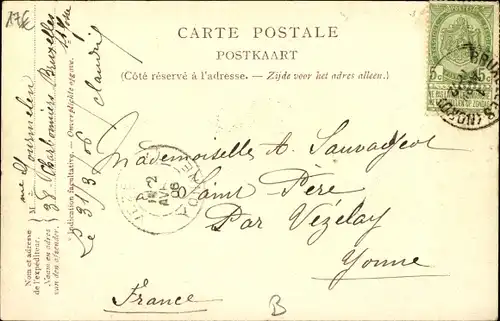 17€
CARTE POSTALE
POSTKAART
(Côté réservé à l'adresse. — Zijde voor het adres alleen.)
5c 5c
Mademoiselle A. Sauvageot
à Saint Père
Par Vézelay
Yonne
France
B
YONNE
2
06
Nom et adresse
de l'expéditeur.
Naam en adres
van den afzender.
M
38
Bruxelles
Indication facultative. — Onverplichte opgave.
Le 31/3 06